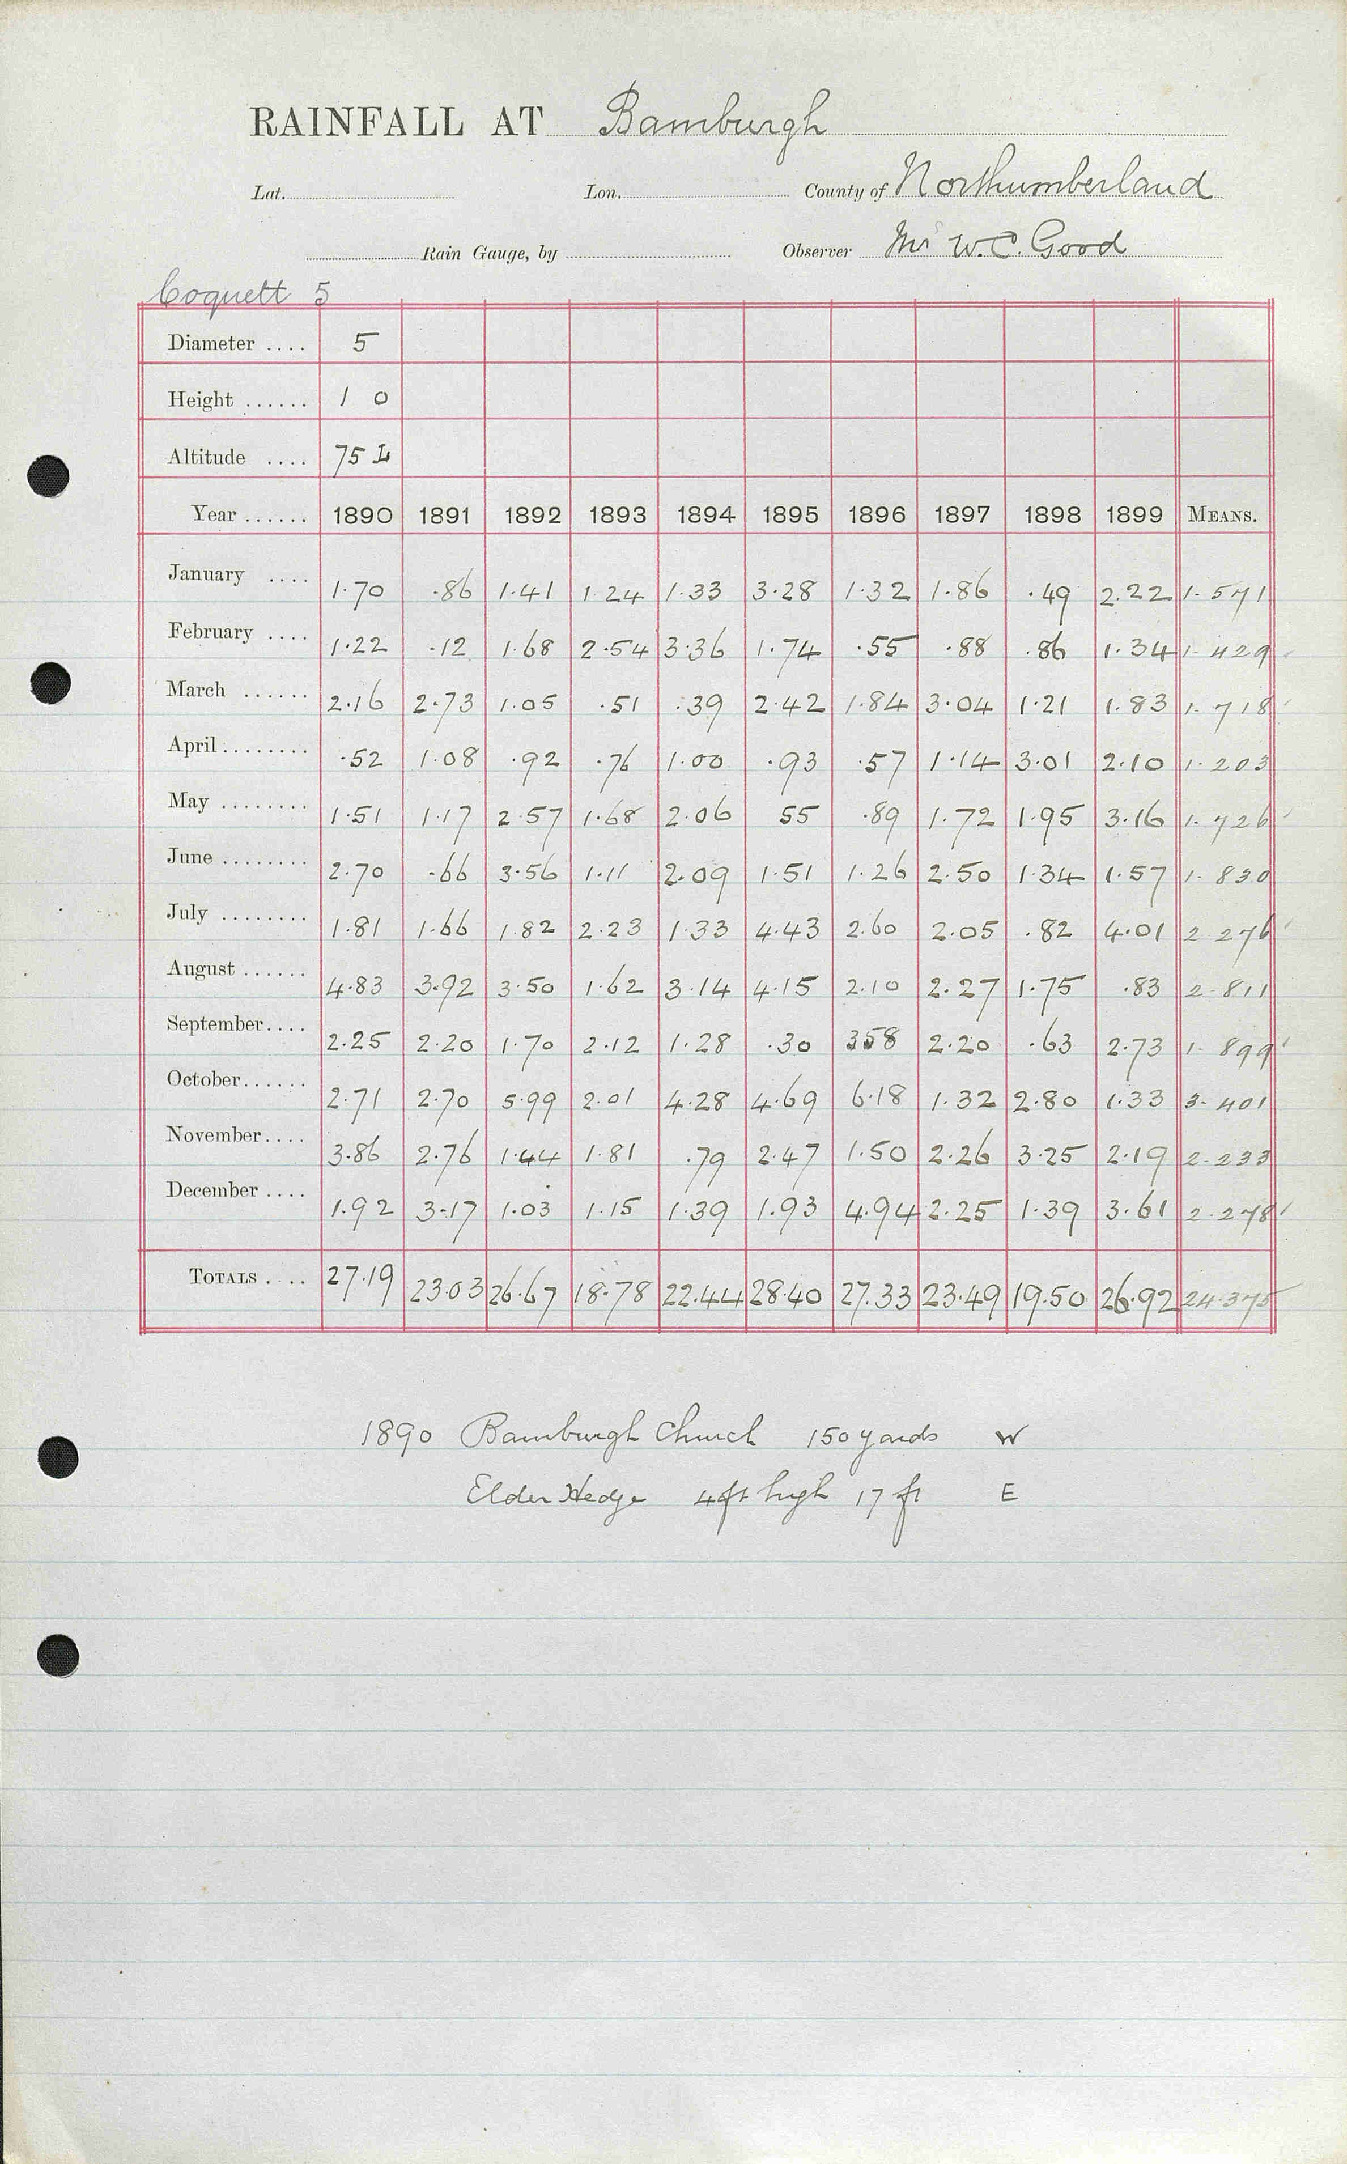 RAINFALL AT Bamburgh
Lat. Lon. County of Northumberland
Rain Gauge, by Observer Mr W.C. Good
Coquett 5
Diameter .... 5
Height ...... 1 0
Altitude .... 75 L
Year ...... 1890 1891 1892 1893 1894 1895 1896 1897 1898 1899 MEANS.
January .... 1.70 .86 1.41 1.24 1.33 3.28 1.32 1.86 .49 2.22 1.571
February .... 1.22 .12 1.68 2.54 3.36 1.74 .55 .88 .86 1.34 1.429
March ...... 2.16 2.73 1.05 .51 .39 2.42 1.84 3.04 1.21 1.83 1.718
April ........ .52 1.08 .92 .76 1.00 .93 .57 1.14 3.01 2.10 1.203
May ........ 1.51 1.17 2.57 1.68 2.06 55 .89 1.72 1.95 3.16 1.726
June ........ 2.70 .66 3.56 1.11 2.09 1.51 1.26 2.50 1.34 1.57 1.830
July ........ 1.81 1.66 1.82 2.23 1.33 4.43 2.60 2.05 .82 4.01 2.276
August ...... 4.83 3.92 3.50 1.62 3.14 4.15 2.10 2.27 1.75 .83 2.811
September.... 2.25 2.20 1.70 2.12 1.28 .30 358 2.20 .63 2.73 1.899
October...... 2.71 2.70 5.99 2.01 4.28 4.69 6.18 1.32 2.80 1.33 3.401
November.... 3.86 2.76 1.44 1.81 .79 2.47 1.50 2.26 3.25 2.19 2.233
December .... 1.92 3.17 1.03 1.15 1.39 1.93 4.94 2.25 1.39 3.61 2.278
TOTALS .... 27.19 23.03 26.67 18.78 22.44 28.40 27.33 23.49 19.50 26.92 24.375
1890 Bamburgh Church 150 yards W
Elder Hedge 4ft high 17 ft E